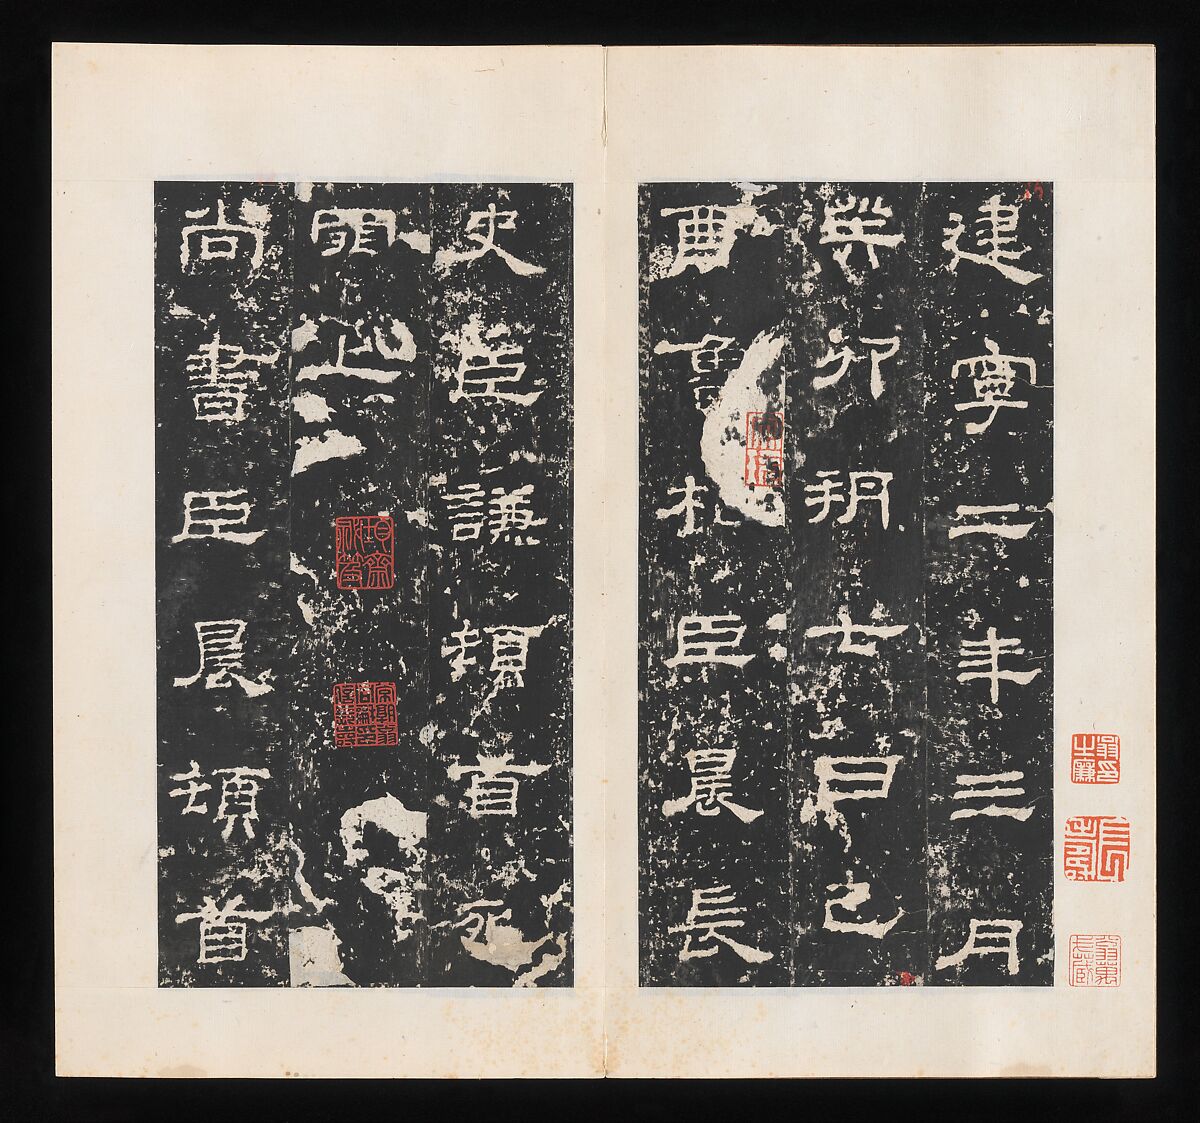 建寧二年三月
癸卯朔七日己
酉魯相臣晨長
史臣謙頓首死
罪上
尚書臣晨頓首
翁印之廉